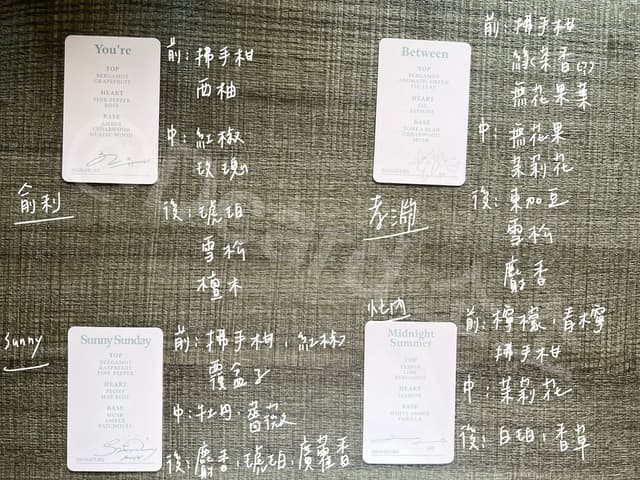 You're
TOP
BERGAMOT
GRAPEFRUIT
HEART
PINK PEPPER
ROSE
BASE
AMBER
CEDARWOOD
前:拂手柑
西柚
中:紅椒
玫瑰
後:琥珀
雪松
檀木
俞利
Between
TOP
BERGAMOT
AROMATIC GREEN
FIG LEAF
HEART
FIG
JASMINE
BASE
TONKA BEAN
CEDARWOOD
MUSK
前:拂手柑
綠茶香(?)
無花果葉
中:無花果
茉莉花
後:東加豆
雪松
麝香
孝淵
Sunny
Sunny Sunday
TOP
BERGAMOT
RASPBERRY
PINK PEPPER
HEART
PEONY
MAY ROSE
BASE
MUSK
AMBER
PATCHOULI
前:拂手柑,紅椒
覆盆子
中:牡丹,薔薇
後:麝香,琥珀,廣藿香
Midnight
Summer
TOP
LEMON
LIME
BERGAMOT
HEART
JASMINE
BASE
WHITE AMBER
VANILLA
前:檸檬,青檸
拂手柑
中:茉莉花
後:白珀,香草